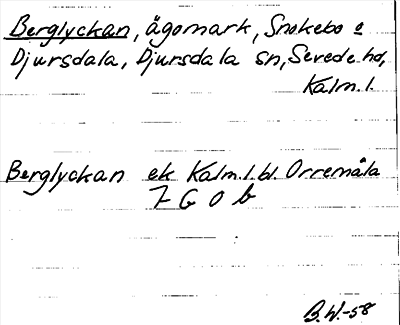 Berglyckan, ägomark, Snokebo o
Djursdala, Djursdala sn, Sevede hd,
Kalm. l.
Berglyckan ek Kalm. l. bl. Orremåla
7 G 0 b
B.W.-58